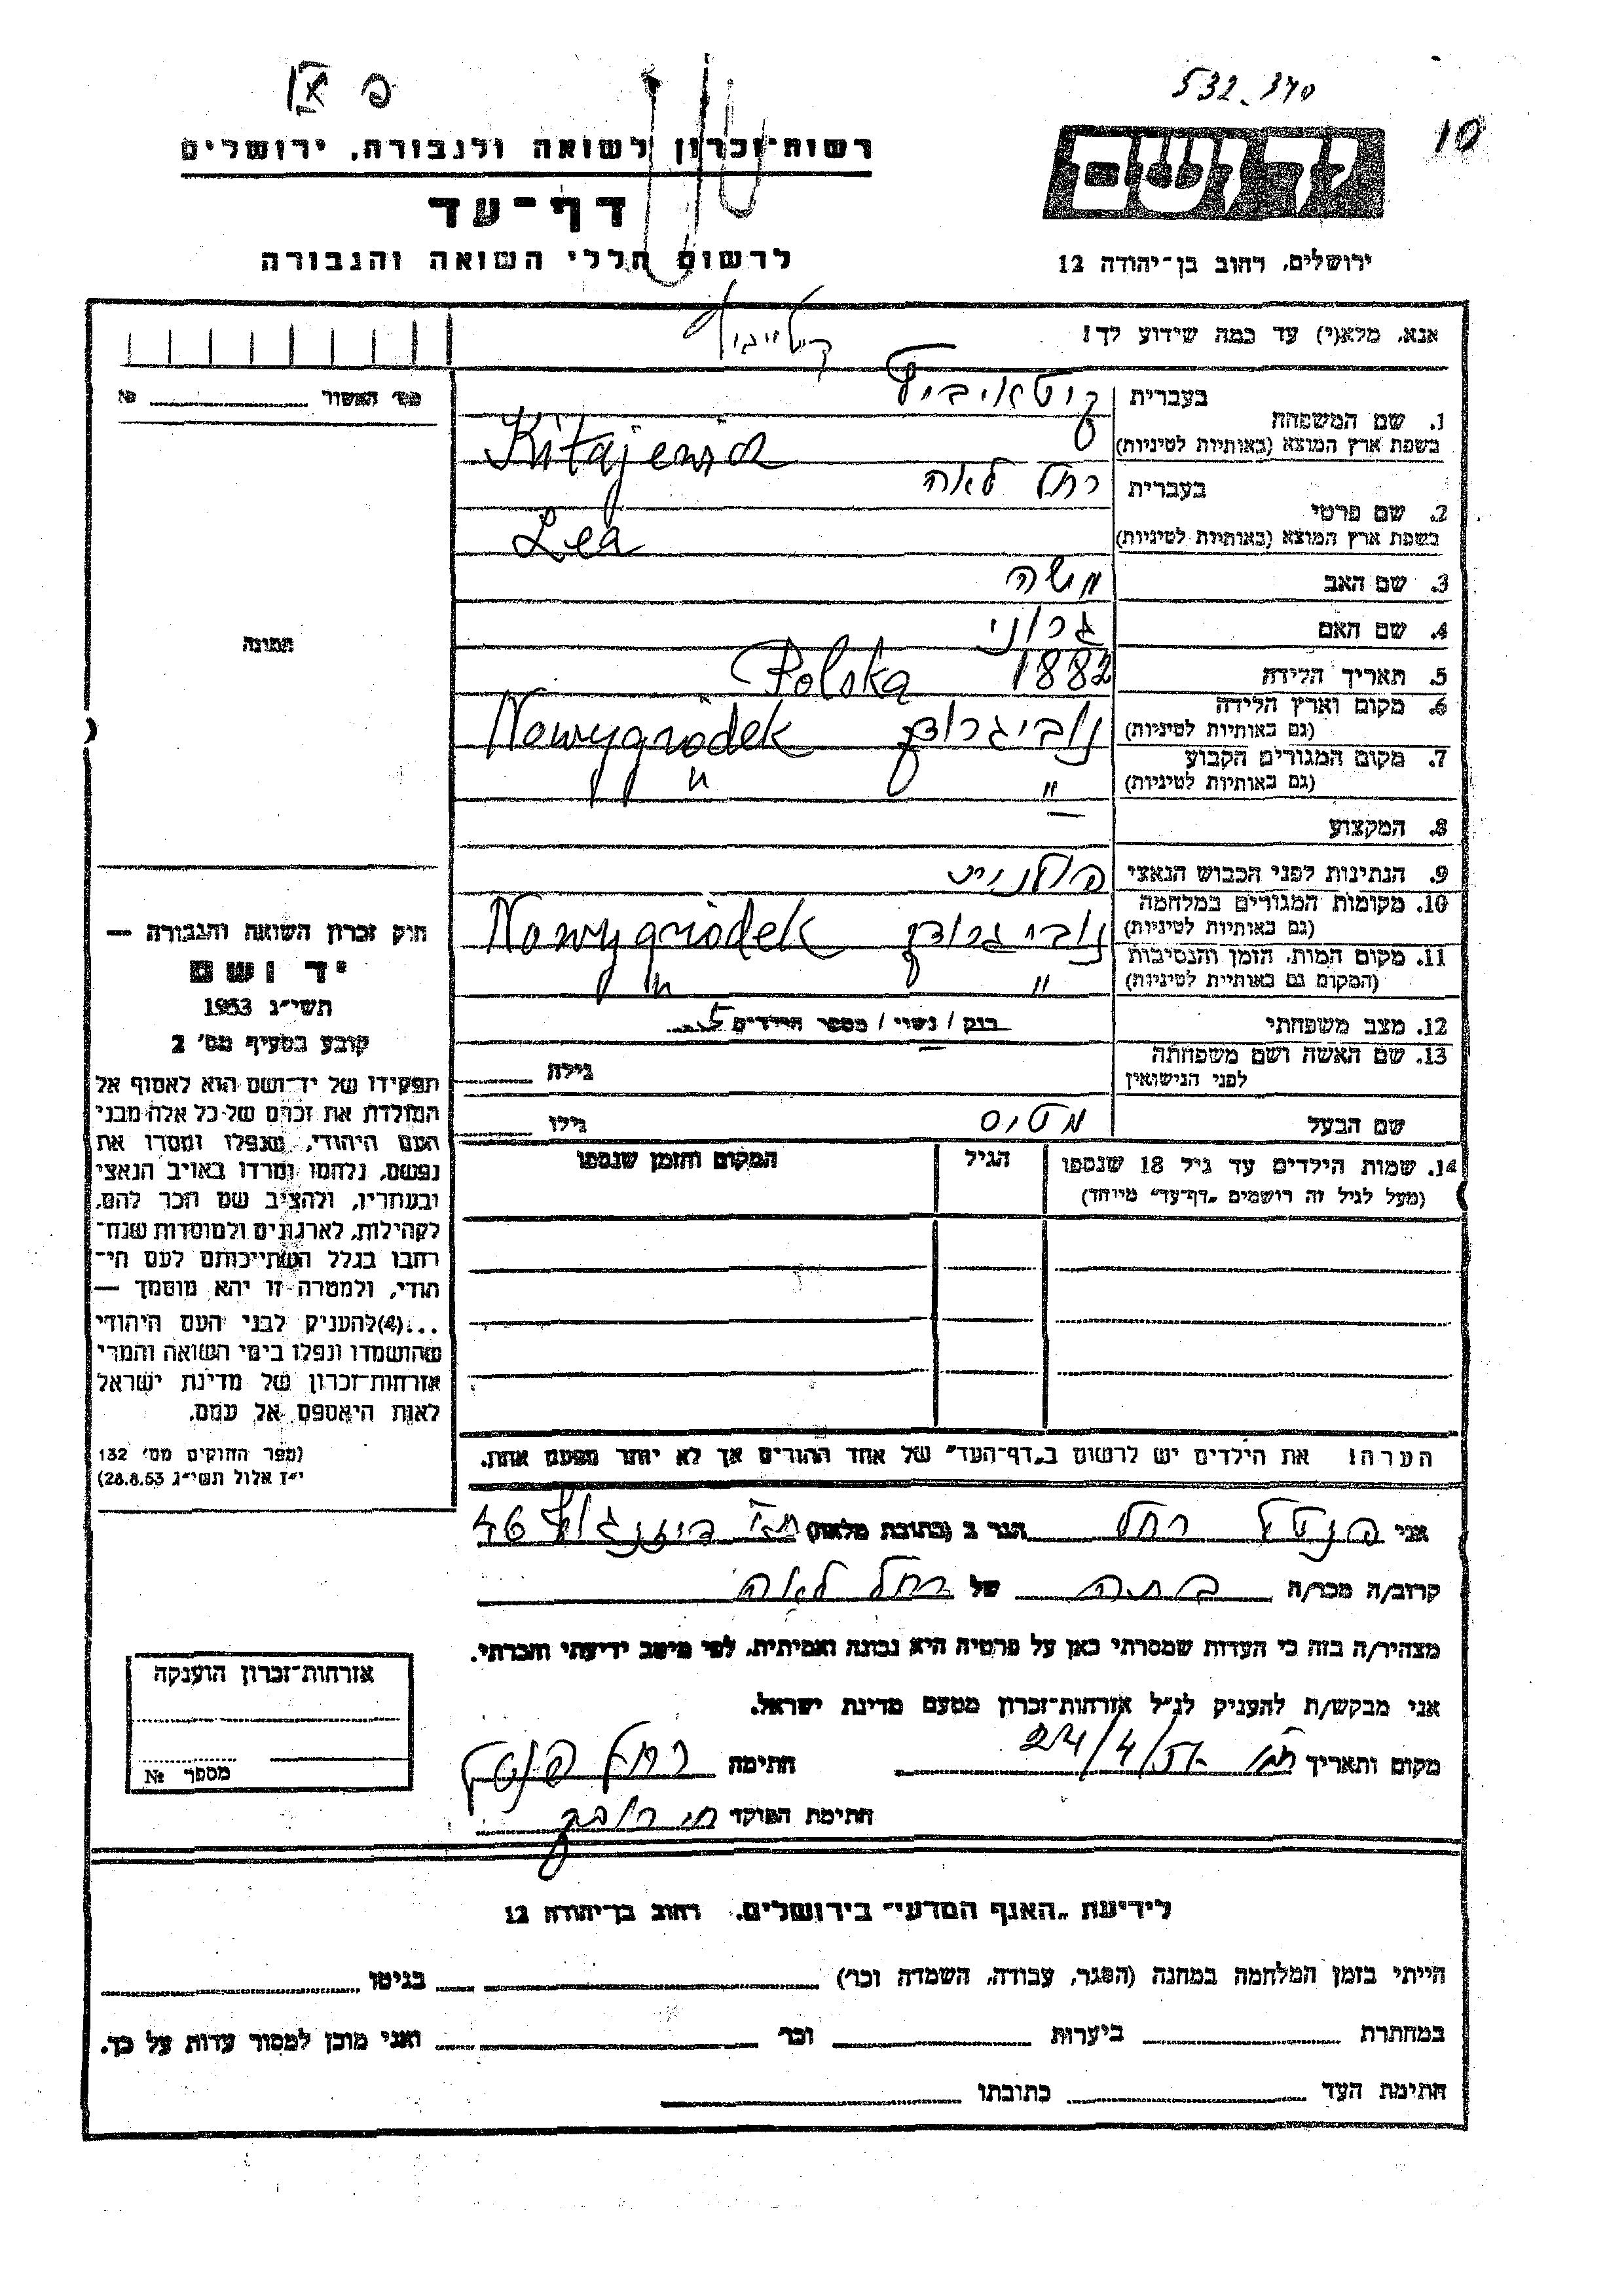 532.370
פ IX
10
ידושם
רשות־זכרון לשואה ולגבורה, ירושלים
דף־עד
לרשום חללי השואה והגבורה
ירושלים, רחוב בן־יהודה 12
אנא, מלא(י) עד כמה שידוע לך!
מס' האשור №
1. שם המשפחה
בעברית קיטאיביץ
בשפת ארץ המוצא (באותיות לטיניות) Kitajewicz
2. שם פרטי
בעברית רחל לאה
בשפת ארץ המוצא (באותיות לטיניות) Lea
3. שם האב משה
4. שם האם גרוני
5. תאריך הלידה 1882 Polska
6. מקום וארץ הלידה
(גם באותיות לטיניות) נוביגרודק Nowygródek
7. מקום המגורים הקבוע
(גם באותיות לטיניות) " "
8. המקצוע
9. הנתינות לפני הכבוש הנאצי פולנית
10. מקומות המגורים במלחמה
(גם באותיות לטיניות) נוביגרודק Nowygródek
11. מקום המות, הזמן והנסיבות
(המקום גם באותיות לטיניות) " "
12. מצב משפחתי רוק / נשוי / מספר הילדים 5
13. שם האשה ושם משפחתה
לפני הנישואין גילה
שם הבעל גילו
14. שמות הילדים עד גיל 18 שנספו הגיל המקום והזמן שנספו
(מעל לגיל זה רושמים "דף־עד" מיוחד)
הערה: את הילדים יש לרשום ב"דף־העד" של אחד ההורים אך לא יותר מפעם אחת.
תמונה
חוק זכרון השואה והגבורה —
יד ושם
תשי"ג 1953
קובע בסעיף מס' 2
תפקידו של יד־ושם הוא לאסוף אל
המולדת את זכרם של כל אלה מבני
העם היהודי, שנפלו ומסרו את
נפשם, נלחמו ומרדו באויב הנאצי
ובעוזריו, ולהציב שם וזכר להם,
לקהילות, לארגונים ולמוסדות שנח־
רבו בגלל השתייכותם לעם הי־
הודי, ולמטרה זו יהא מוסמך —
...(4) להעניק לבני העם היהודי
שהושמדו ונפלו בימי השואה והמרי
אזרחות־זכרון של מדינת ישראל
לאות היאספם אל עמם.
(ספר החוקים מס' 132
י"ז אלול תשי"ג 28.8.53)
אני רחל הגר ב (כתובת מלאה) 46
קרוב/ה מכר/ה בתה של רחל לאה
מצהיר/ה בזה כי העדות שמסרתי כאן על פרטיה היא נכונה ואמיתית, לפי מיטב ידיעתי והכרתי.
אני מבקש/ת להעניק לנ"ל אזרחות־זכרון מטעם מדינת ישראל.
מקום ותאריך 24/4/ חתימה רחל
חתימת הפוקד
אזרחות־זכרון הוענקה
מספר №
לידיעת "האגף המדעי" בירושלים, רחוב בן־יהודה 12
הייתי בזמן המלחמה במחנה (הסגר, עבודה, השמדה וכו') בגיטו
במחתרת ביערות וכו' ואני מוכן למסור עדות על כך.
חתימת העד כתובתו